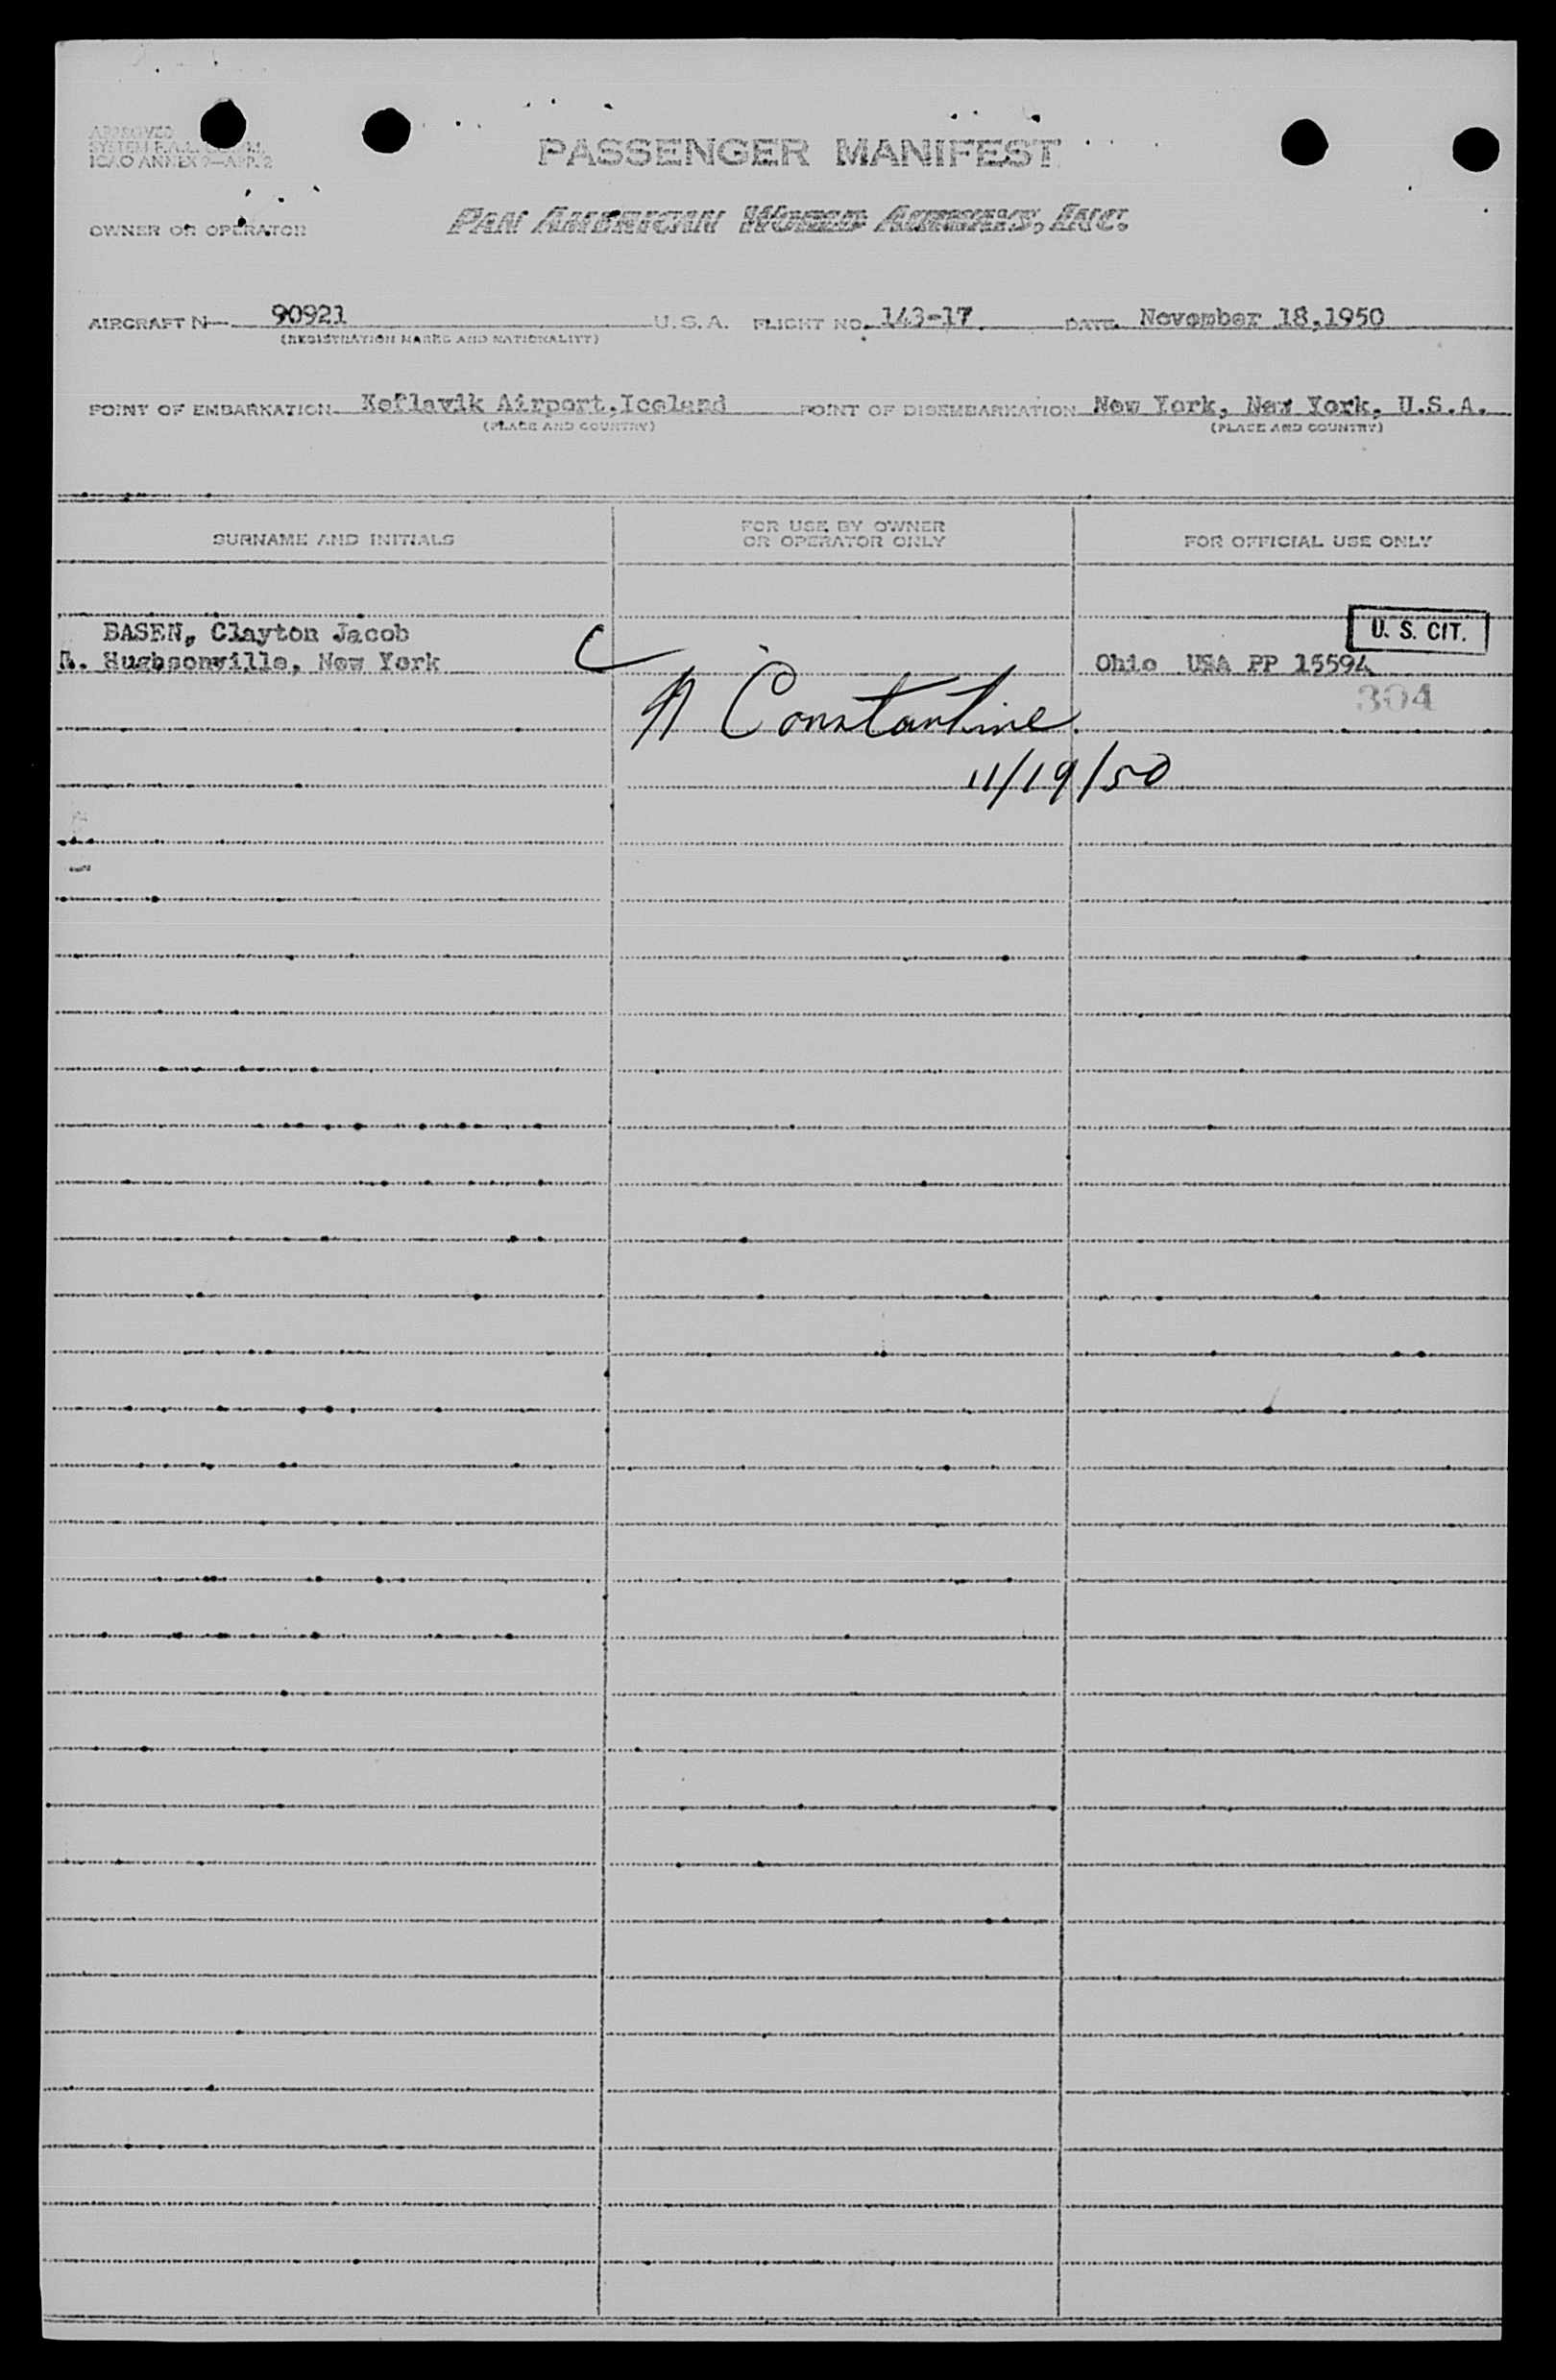 APPROVED
SYSTEM F.A.L. COMM.
ICAO ANNEX 9—APP. 2
PASSENGER MANIFEST
OWNER OR OPERATOR PAN AMERICAN WORLD AIRWAYS, INC.
AIRCRAFT N— 90921 U.S.A. FLIGHT NO. 143-17 DATE November 18,1950
(REGISTRATION MARKS AND NATIONALITY)
POINT OF EMBARKATION Keflavik Airport,Iceland POINT OF DISEMBARKATION New York, New York, U.S.A.
(PLACE AND COUNTRY) (PLACE AND COUNTRY)
SURNAME AND INITIALS FOR USE BY OWNER OR OPERATOR ONLY FOR OFFICIAL USE ONLY
BASEN, Clayton Jacob U. S. CIT.
Hughsonville, New York C Ohio USA PP 15594
304
N Constantine
11/19/50